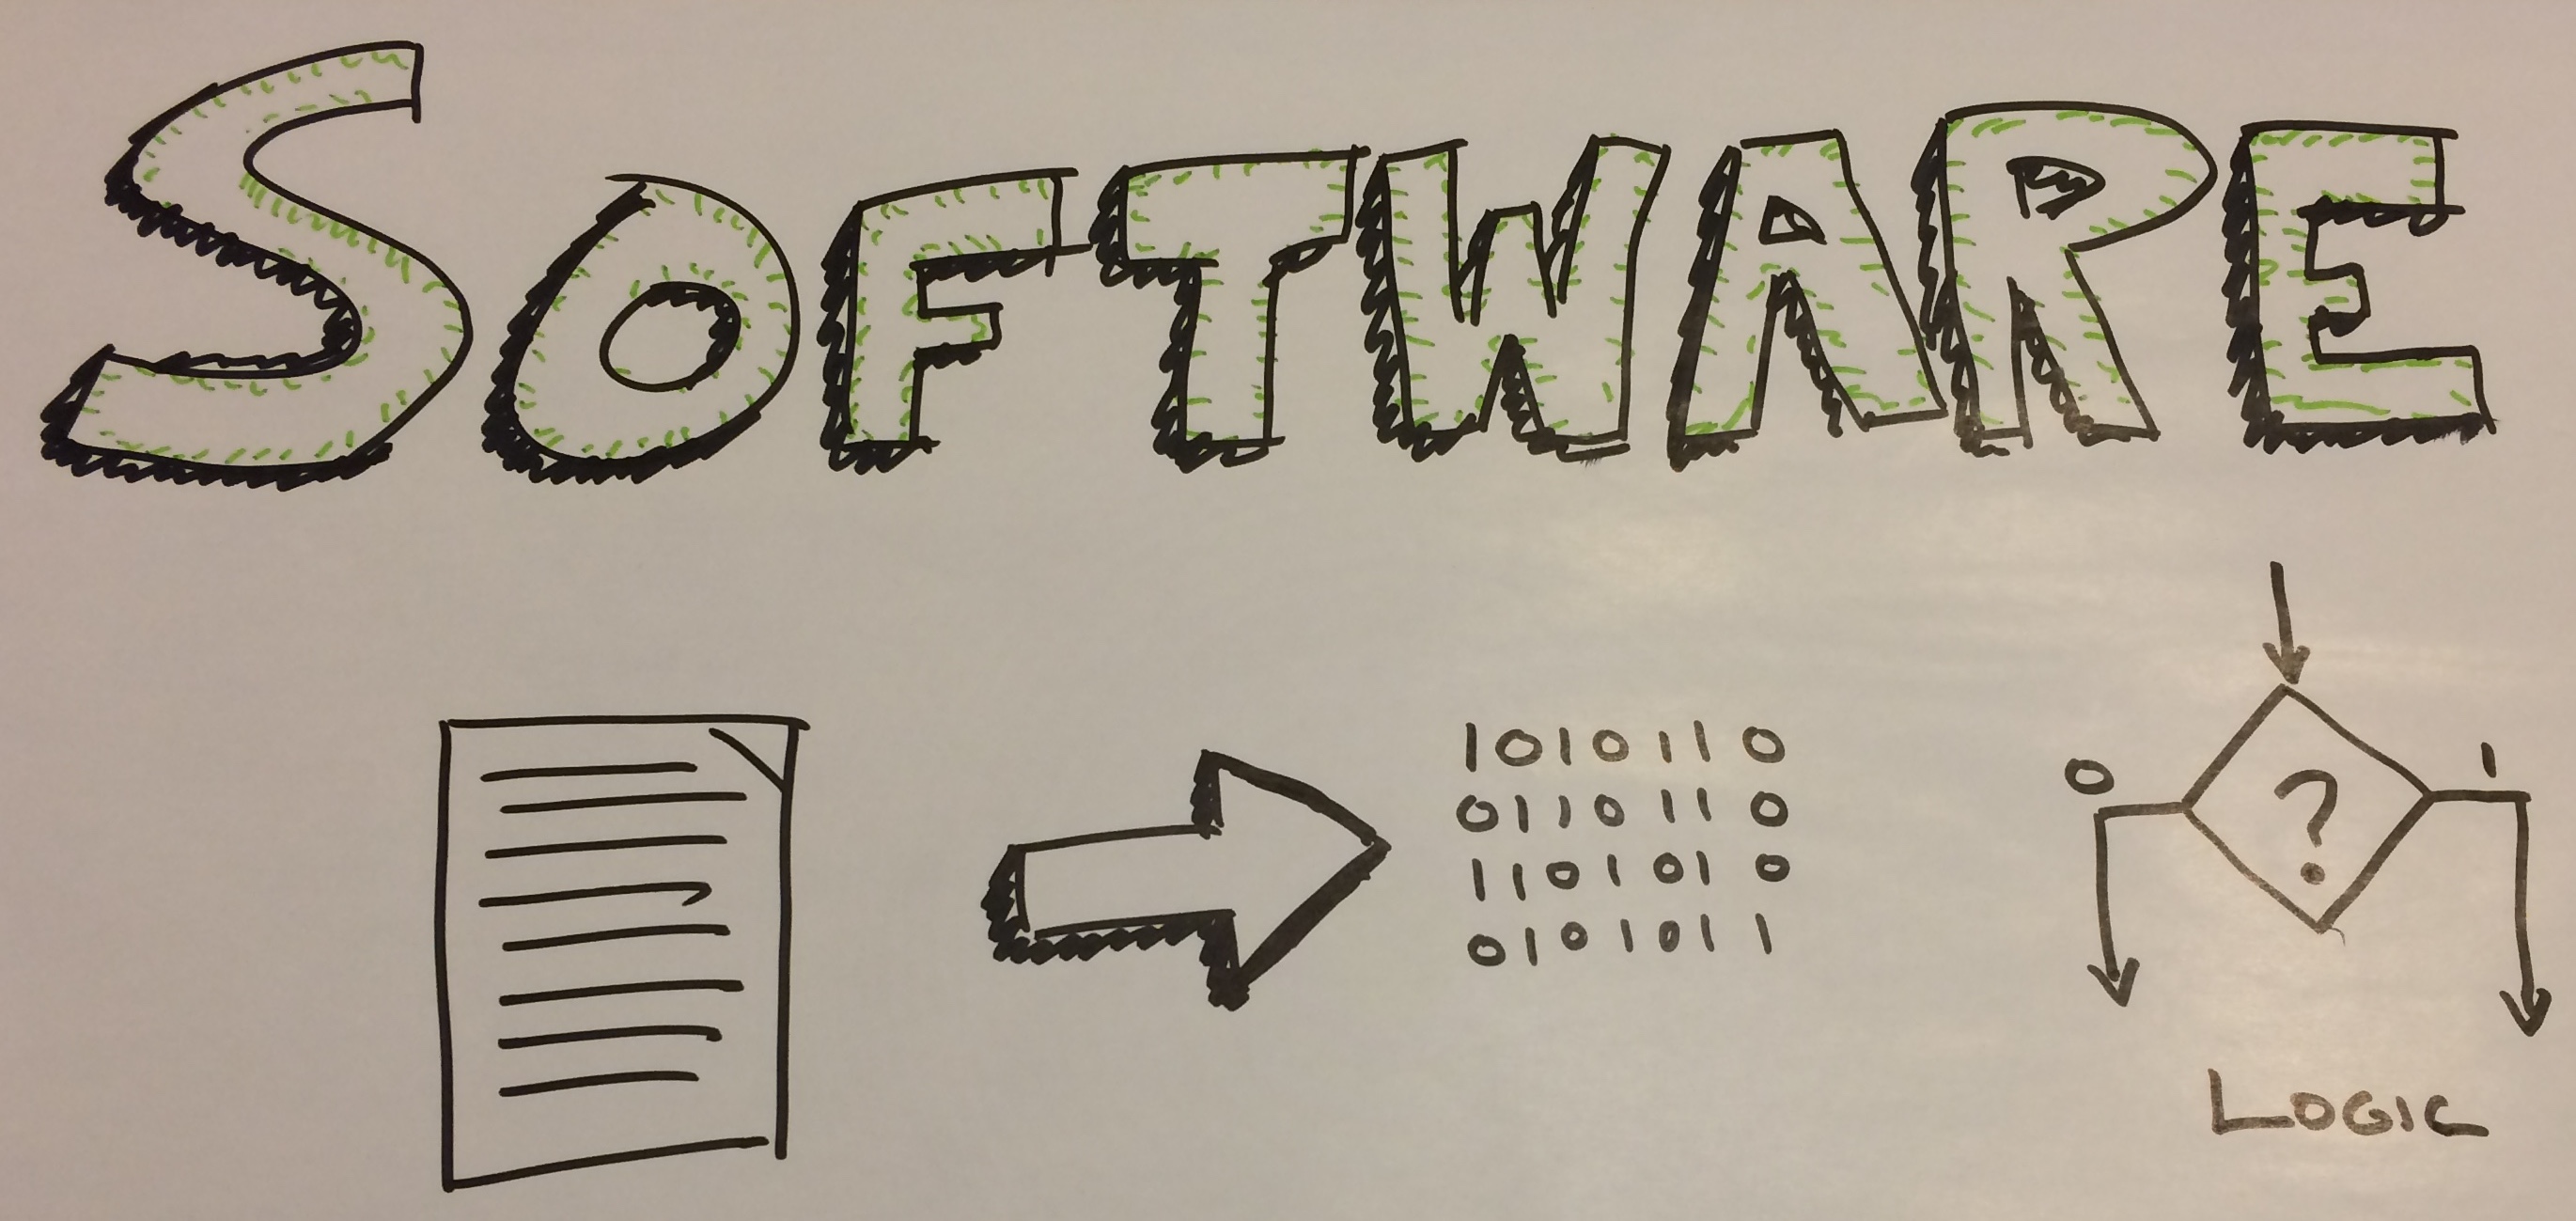 SOFTWARE
1010110
0110110
1101010
0101011
0 ? 1
LOGIC